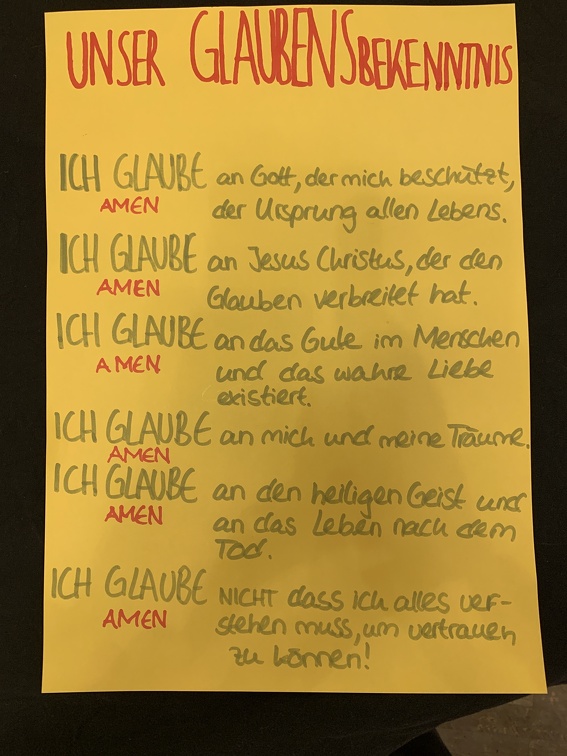 UNSER GLAUBENSBEKENNTNIS
ICH GLAUBE an Gott, der mich beschützt,
AMEN der Ursprung allen Lebens.
ICH GLAUBE an Jesus Christus, der den
AMEN Glauben verbreitet hat.
ICH GLAUBE an das Gute im Menschen
AMEN und das wahre Liebe
existiert.
ICH GLAUBE an mich und meine Träume.
AMEN
ICH GLAUBE an den heiligen Geist und
AMEN an das Leben nach dem
Tod.
ICH GLAUBE NICHT dass ich alles ver-
AMEN stehen muss, um vertrauen
zu können!